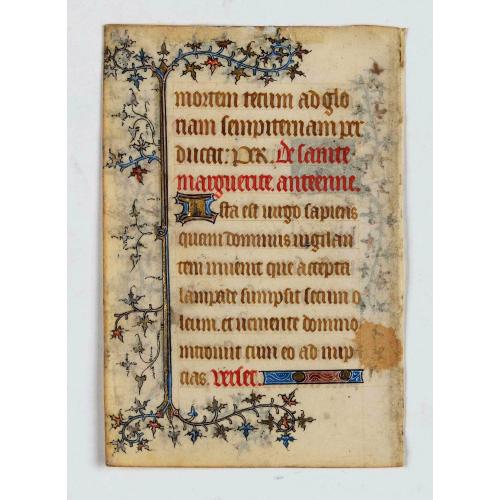 mortem tecum ad glo
riam sempiternam per
ducat. Per. De sainte
marguerite. anteenne.
Ista est uirgo sapiens
quam dominus uigilan
tem inuenit que accepta
lampade sumpsit secum o
leum. et ueniente domino
introiuit cum eo ad nup
cias. verset.